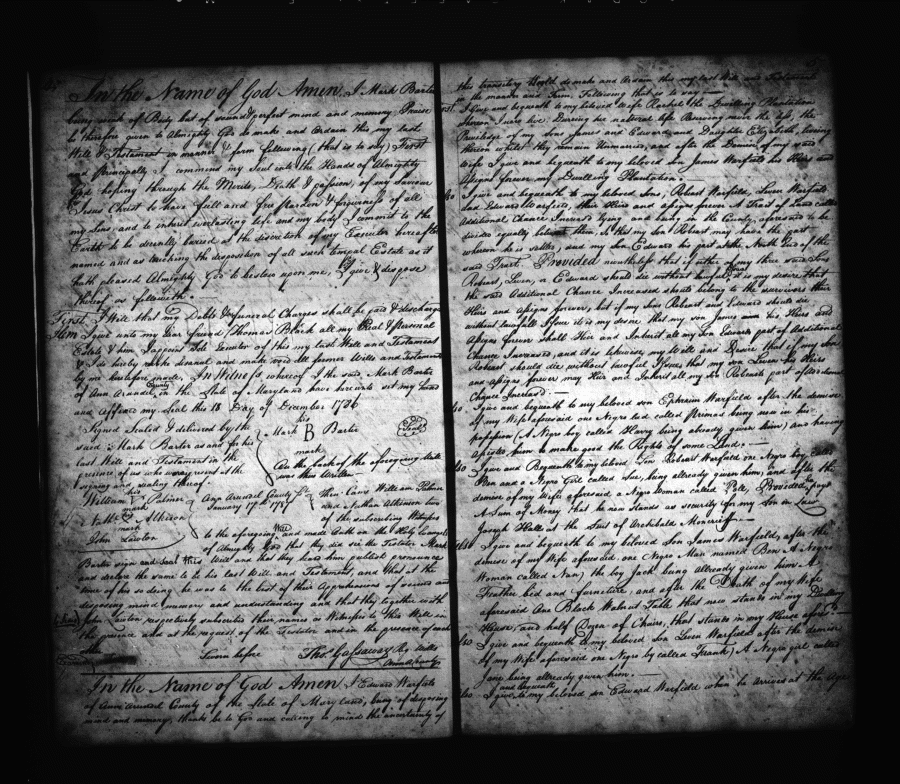 In the Name of God Amen I Mark Barter
being weak of Body but of sound & perfect mind and memory Praise
be therefore given to Almighty God do make and Ordain this my last
Will & Testament in manner & form following (that is to say) First
and Principally I commend my Soul into the Hands of Almighty
God hoping through the Merits, Death & passion, of my Saviour
Jesus Christ to have full and free pardon & forgiveness of all
my Sins, and to inherit everlasting life and my body I commit to the
Earth to be decently buried at the discretion of my Executor hereafter
named and as touching the disposition of all such temporal Estate as it
hath pleased Almighty God to bestow upon me, I give & dispose
thereof as followeth.
First I Will that my Debts & funeral Charges shall be paid & discharged
Item I give unto my Dear friend Thomas Black all my Real & personal
Estate & him I appoint Sole Executor of this my last Will and Testament
& I do hereby revoke disanul and make void all former Wills and Testaments
by me heretofore made, In Witness whereof I the said Mark Barter
of Ann Arundel County in the State of Maryland have hereunto set my Hand
and affixed my Seal this 18 Day of December 1786
Signed Sealed & delivered by the
said Mark Barter as and for his
last Will and Testament in the
presence of us who were present at the
signing and sealing thereof.
his
Mark B Barter
mark
Seal
On the back of the aforegoing Will
was thus Written
his
William Palmer
mark
Nathan Atkinson
mark
John Lawton
Ann Arundel County Ss
January 17th 1787
Then Came William Palmer
and Nathan Atkinson two
of the subscribing Witnesses
to the aforegoing Will and made Oath on the Holy Evangels
of Almighty God that they did see the Testator Mark
Barter sign and Seal this Will and that they heard him publish pronounce
and declare the same to be his last Will and Testament, and that at the
time of his so doing he was to the best of their Apprehensions of sound and
disposing mind memory and understanding and that they together with
John Lawton respectively subscribed their names as Witnesses to this Will in
the presence and at the request of the Testator and in the presence of each
other
Sworn before Thos Gassaway Reg Wills
Ann Arl County
In the Name of God Amen I Edward Warfield
of Ann Arundel County of the State of Maryland, being of disposing
mind and memory, thanks be to God and calling to mind the uncertainty of
this transitory World do make and Ordain this my last Will and Testament
in the manner and Form, Following that is to say
I Give and bequeath to my beloved Wife Rachel the Dwelling Plantation
whereon I now live During her natural life Reserving the
Priviledge of my Sons James and Edward and Daughter Elizabeth, living
thereon whilst they remain Unmarried, and after the Demise of my said
Wife I give and bequeath to my beloved son James Warfield his Heirs and
Assigns forever my Dwelling Plantation.
I give and bequeath to my beloved sons, Robert Warfield, Levin Warfield
and Edward Warfield, their Heirs and Assigns forever A Tract of Land called
Additional Chance Increased lying and being in the County aforesaid to be
divided equally between them, so that my Son Robert may have the part
whereon he is settled, and my son Edward his part at the North End of the
said Tract. Provided nevertheless that if either of my three said Sons
Robert, Levin, or Edward should die without lawful Issue, it is my desire that
the said Additional Chance Increased should belong to the survivors their
Heirs and Assigns forever, but if my Sons Robert and Edward should die
without lawful Issue it is my desire that my son James his Heirs and
Assigns forever shall Heir and Inherit all my Son Edwards part of Additional
Chance Increased, and it is likewise my Will and Desire that if my Son
Robert should die without lawful Issue that my son Levin his Heirs
and Assigns forever may Heir and Inherit all my Son Roberts part of Additional
Chance Increased.
I give and bequeath to my beloved son Ephraim Warfield after the demise
of my Wife aforesaid one Negro lad called Primas being now in his
possession (A Negro boy called Harry being already given him) and having
assisted him to make good the Rights of some Land.
I give and Bequeath to my beloved Son Robert Warfield one Negro boy called
Ben and a Negro Girl called Sue, being already given him, and after the
demise of my Wife aforesaid a Negro Woman called Poll, Provided he pays
A Sum of Money that he now Stands as security for my Son in Law
Joseph Hall at the Suit of Archibald Moncrieff.
I give and bequeath to my beloved Son James Warfield, after the
demise of my Wife aforesaid, one Negro Man named Ben A Negro
Woman called Nan) the boy Jack being already given him) A
Feather bed and furniture, and after the Death of my Wife
aforesaid One Black Walnut Table that now stands in my Dwelling
House, and half Dozen of Chairs, that stands in my House aforesaid
I give and bequeath to my beloved son Levin Warfield after the demise
of my Wife aforesaid one Negro boy called Frank) A Negro girl called
being already given him.
I give and bequeath to my beloved son Edward Warfield when he arrives at the Age